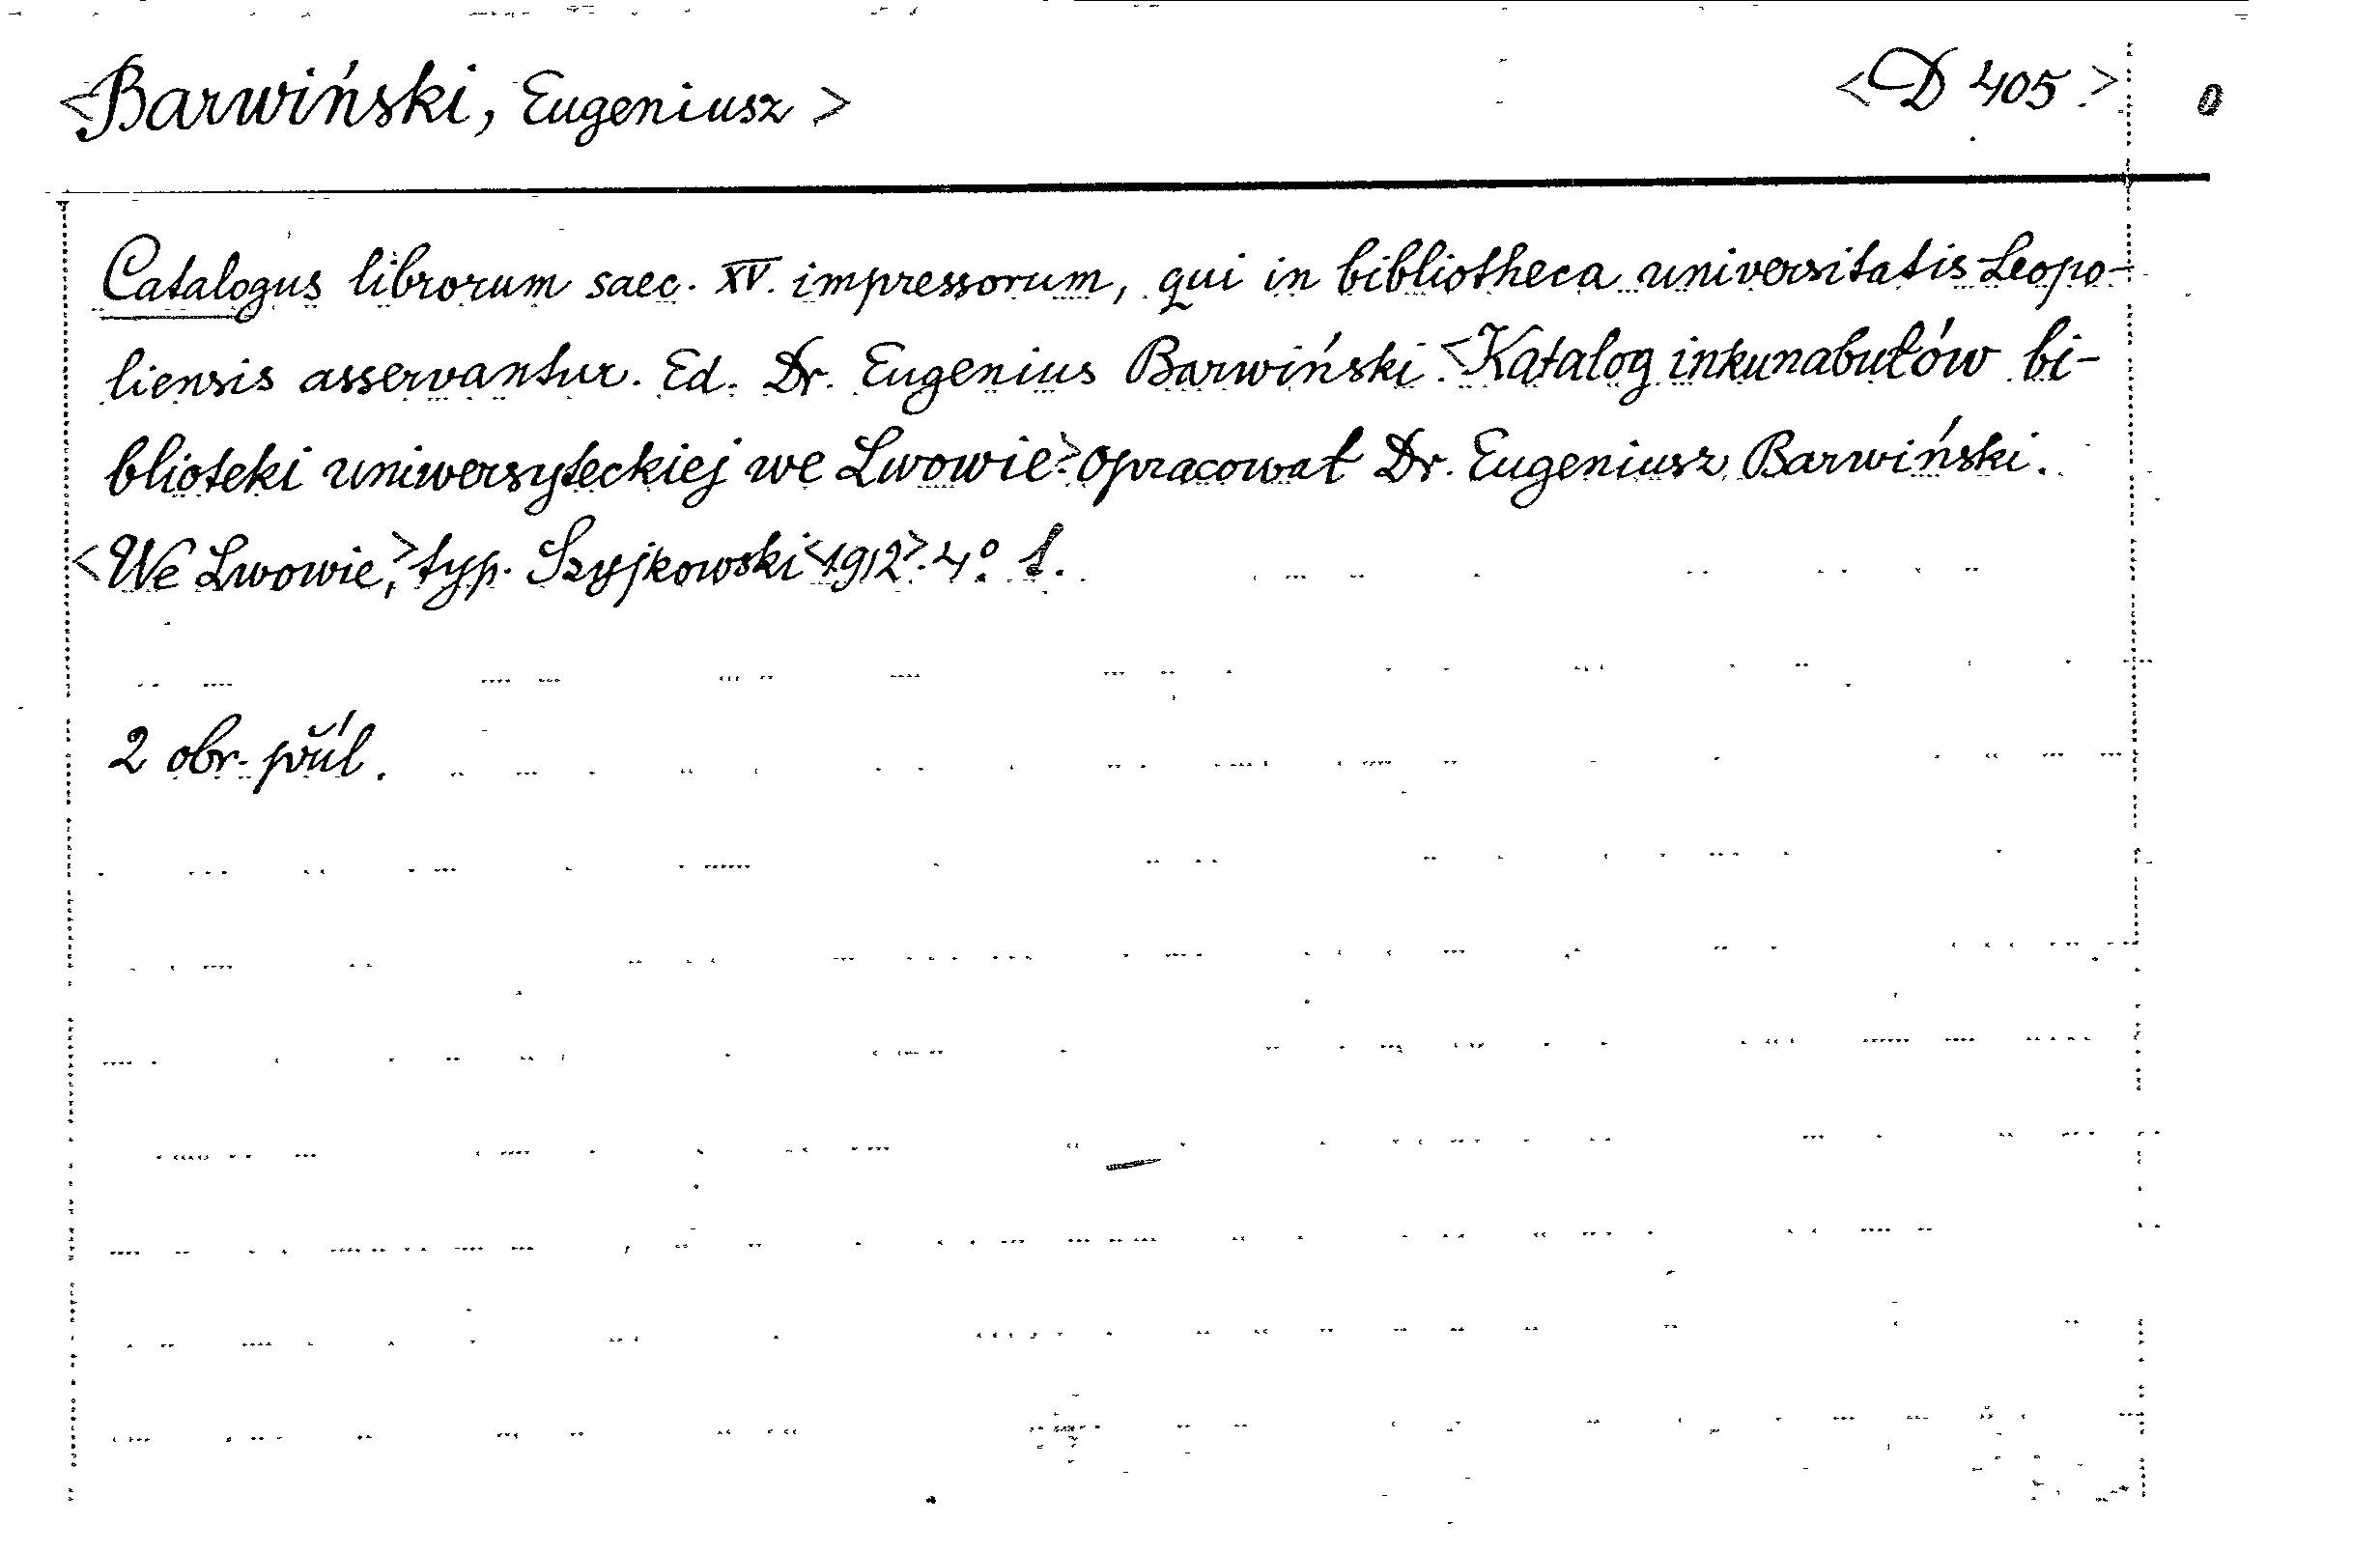 <Barwiński, Eugeniusz> <D 405.>
Catalogus librorum saec. XV. impressorum, qui in bibliotheca universitatis Leopo-
liensis asservantur. Ed. Dr. Eugenius Barwiński. <Katalog inkunabułów bi-
blioteki uniwersyteckiej we Lwowie> opracował Dr. Eugeniusz Barwiński.
<We Lwowie,> typ. Szyjkowski <1912>. 4° 1.
2 obr. půl.